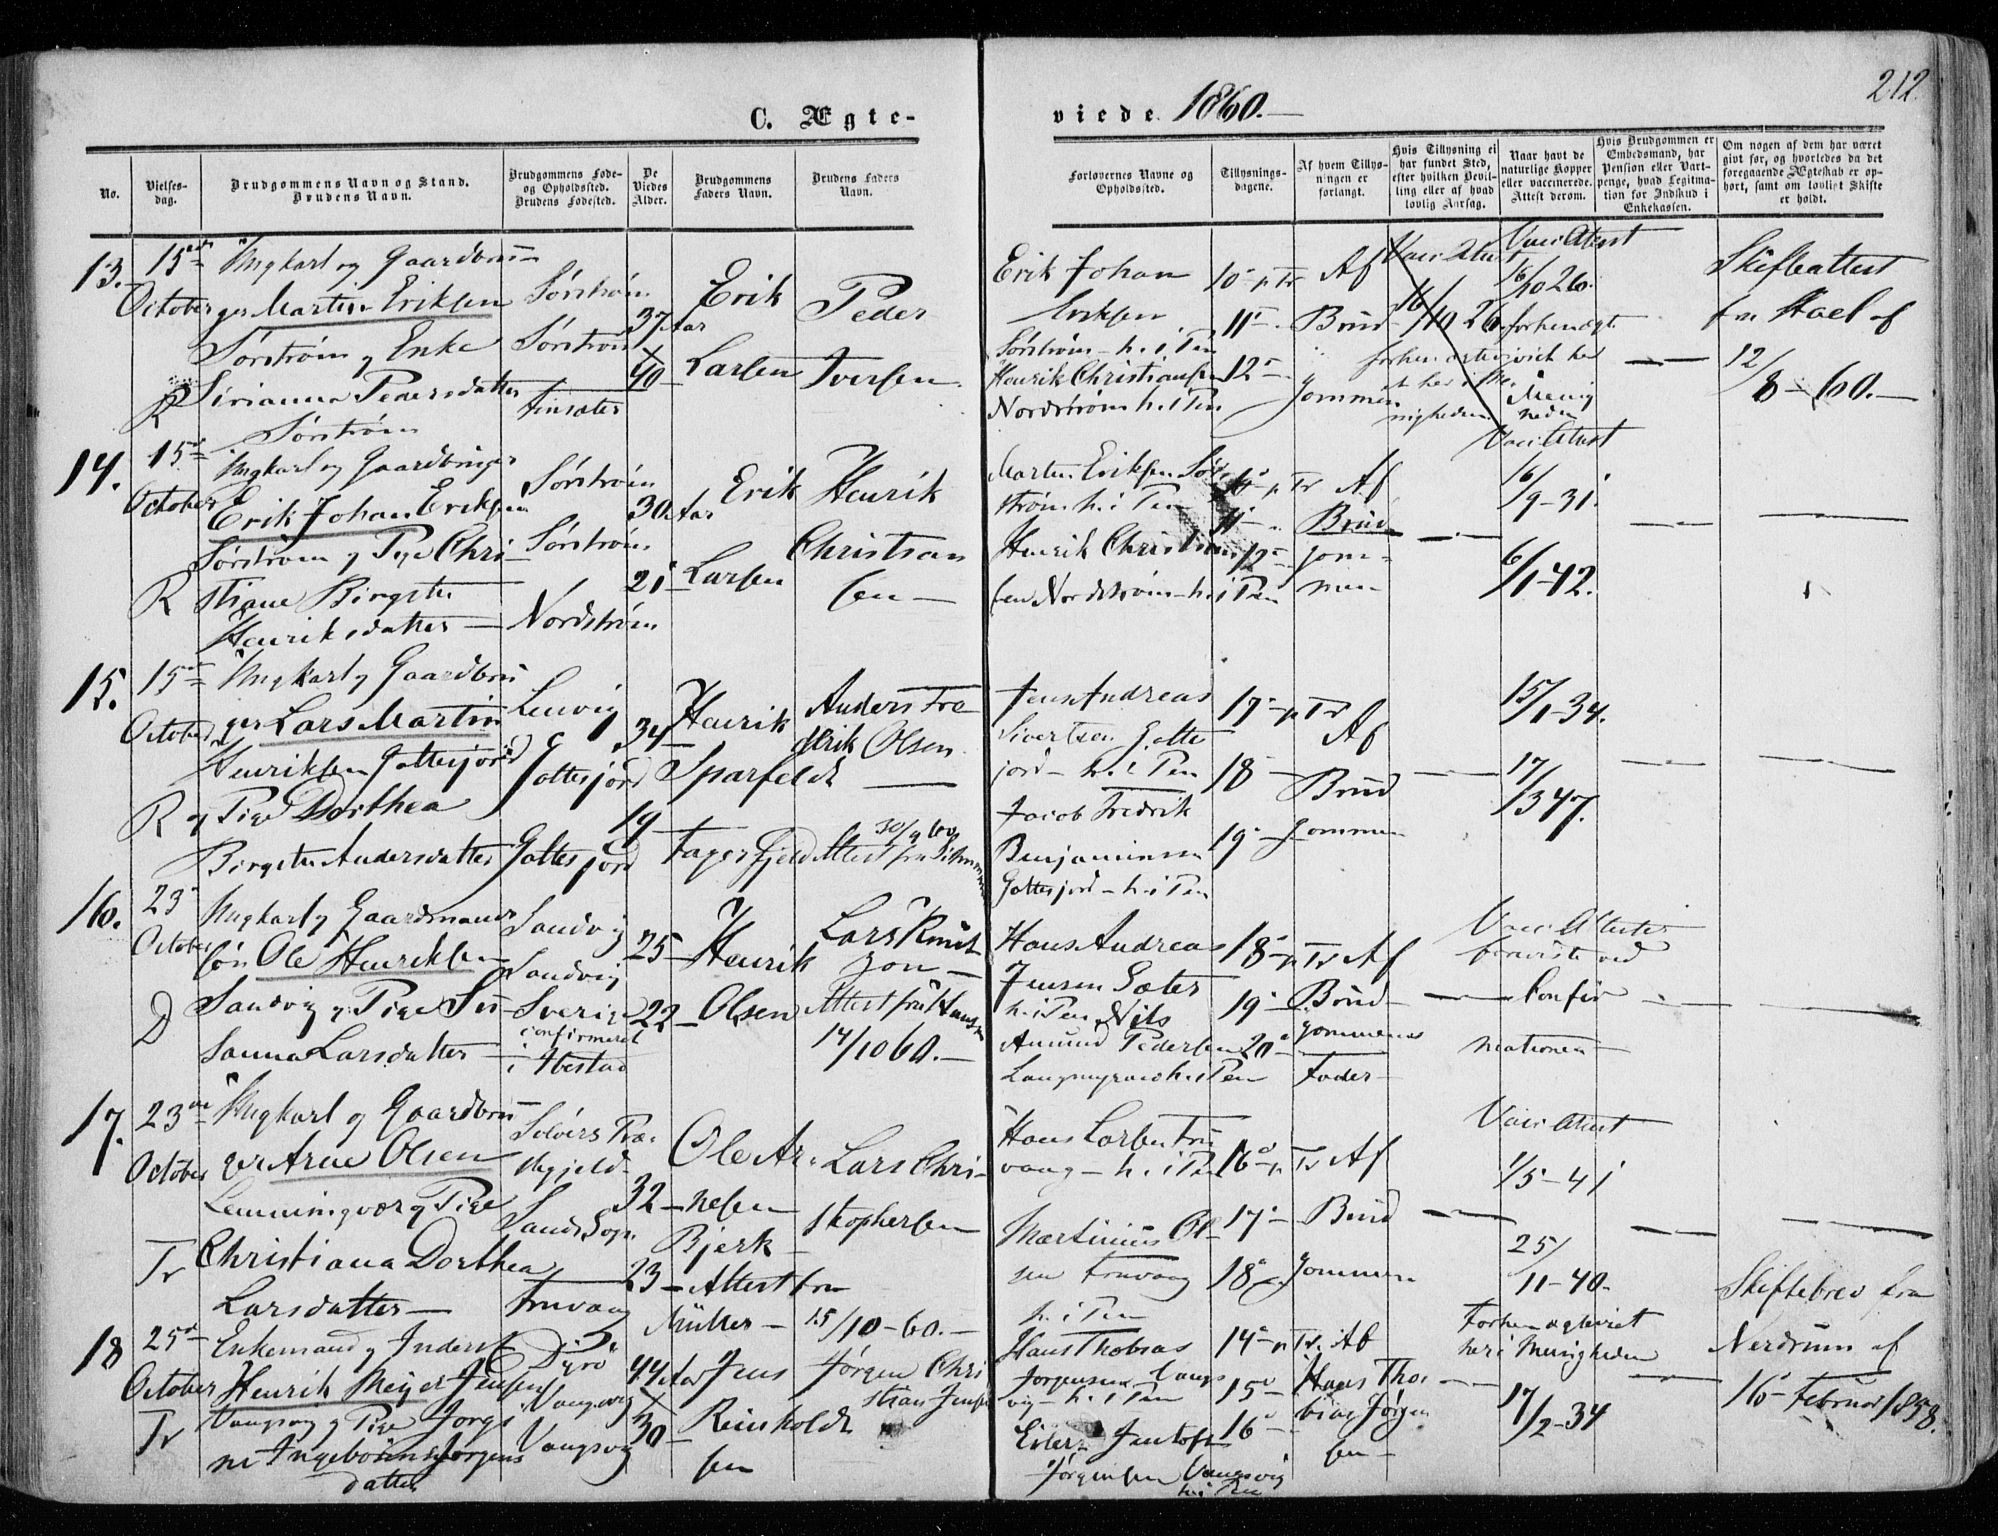 212.
C. Ægte-
viede 1860.
No.
Vielses-
dag.
Brudgommens Navn og Stand.
Brudens Navn.
Brudgommens Føde-
og Opholdssted.
Brudens Fødested.
De
Viedes
Alder.
Brudgommens
Faders Navn.
Brudens Faders
Navn.
Forlovernes Navne og
Opholdssted.
Tillysnings-
dagene.
Af hvem Tillys-
ningen er
forlangt.
Hvis Tillysning ei
har fundet Sted,
efter hvilken Bevil-
ling eller af hvad
lovlig Aarsag.
Naar havt de
naturlige Kopper
eller vaccinerede.
Attest derom.
Hvis Brudgommen er
Embedsmand, har
Pension eller Vart-
penge, hvad Legitima-
tion for Indskud i
Enkekassen.
Om nogen af dem har været
givt før, og hvorledes da det
foregaaende Ægteskab er op-
hørt, samt om lovligt Skifte
er holdt.
13.
15de
October
Ungkarl og Gaardbru-
ger Martin Eriksen
Sørstrøm og Enke
Sirianna Pedersdatter
Sørstrøm
R
Sørstrøm
Sørstrøm
Finsæter
37 Aar
40
Erik
Larsen
Peder
Iversen
Erik Johan
Eriksen
Sørstrøm - h. i Pen
Henrik Christiansen
Nordstrøm h. i Pen
10 p Tr
11
12
Af
Brud-
gommen
Vacc Attest
16/10 26
Vacc Attest
16/10 26.
forhen ægte
viet her
i Menig
heden
Skifteattest
fra Hoel af
12/8 - 60.
14.
15de
October
Ungkarl og Gaardbruger
Erik Johan Eriksen
Sørstrøm og Pige Chri-
stiane Birgitte
Henriksdatter
R
Sørstrøm
Sørstrøm
Nordstrøm
30 Aar
21
Erik
Larsen
Henrik
Christian
sen
Martin Eriksen Sør-
strøm h. i Pen
Henrik Christian
sen Nordstrøm - h. i Pen
10 p Tr
11
12
Af
Brud
gom-
men
Vacc Attest
16/9 - 31
6/1 - 42.
15.
15de
October
Ungkarl og Gaardbru
ger Lars Martin
Henriksen Gottesjord
og Pige Dorthea
Birgitte Andersdatter
R
Lenvig
Gottesjord
Gottesjord
34
19
Henrik
Sparfeldt
Fagerfjeld
Anders Fre
derik Olsen
Attest fra
30/9 60
Jens Andreas
Sivertsen Gotte
jord - h. i Pen
Jacob Fredrik
Benjaminsen
Gottesjord - h. i Pen
17 p Tr
18
19
Af
Brud
gommen
15/1 - 34.
17/3 47.
16.
23
October
Ungkarl og Gaardmands
søn Ole Henriksen
Sandvig og Pige Su
sanna Larsdatter
D
Sandvig
Sandvig
Sverige
confirmeret
i Ibestad
25
22
Henrik
Olsen
Lars Knut
zon
Attest fra Hansen
14/10 60.
Hans Andreas
Jensen Sæter
h. i Pen Nils
Amund Pedersen
h. i Pen
18 p Tr
19
20
Af
Brud-
gommens
Fader
Vacc Attester
beviste ved
Confir
mationen
17.
23de
October
Ungkarl og Gaardbru
ger Arne Olsen
Lemmingvær og Pige
Christiana Dorthea
Larsdatter
Tr
Sølvers Præ
stegjeld
Sands Sogn
Finvaag
32
23
Ole Ar-
nesen
Bjerk
Attest fra
Müller - 15/10 - 60.
Lars Chri-
stophersen
Hans Larsen Fin
vaag - h. i Pen
Martinius Ol-
sen Finvaag
h. i Pen
16 p Tr
17
18
Af
Brud
gommen
Vacc Attest
1/5 - 41
25/11 - 40.
18
25de
October
Enkemand og Inderst
Henrik Meyer Jensen
Vangsvig og Pige Jørgi
ne Ingeborg Jørgens
datter
Tr
Dyrø
Vangsvig
Vangsvig
44 Aar
30
Jens
Reinholdt
sen
Jørgen Chri
stian Jensen
Hans Thobias
Jørgensen Vangs
vig - h. i Pen
Eilert Jentoft
Jørgensen Vangsvig
h. i Pen
14 p Tr.
15
16
Af
Hans Tho-
bias Jørgen
sen
Forhen ægteviet
her i Menigheden
17/2 - 34
Skiftebrev fra
Nerdrum af
16 Februar 1858.